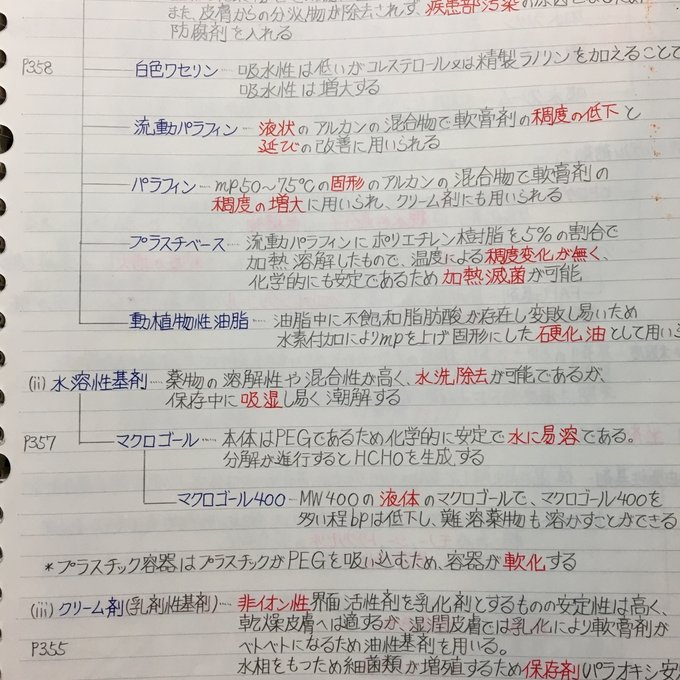 また、皮膚からの分泌物が除去されず、疾患部汚染の原因となるため
防腐剤を入れる
P358 白色ワセリン…吸水性は低いがコレステロール又は精製ラノリンを加えることで
吸水性は増大する
流動パラフィン…液状のアルカンの混合物で軟膏剤の稠度の低下と
延びの改善に用いられる
パラフィン…mp50~75℃の固形のアルカンの混合物で軟膏剤の
稠度の増大に用いられ、クリーム剤にも用いられる
プラスチベース…流動パラフィンにポリエチレン樹脂を5%の割合で
加熱溶解したもので、温度による稠度変化が無く、
化学的にも安定であるため加熱滅菌が可能
動植物性油脂…油脂中に不飽和脂肪酸が存在し変敗し易いため
水素付加によりmpを上げ固形にした硬化油として用い
(ii) 水溶性基剤…薬物の溶解性や混合性が高く、水洗除去が可能であるが、
保存中に吸湿し易く潮解する
P357 マクロゴール…本体はPEGであるため化学的に安定で水に易溶である。
分解が進行するとHCHOを生成する
マクロゴール400…MW400の液体のマクロゴールで、マクロゴール400を
多い程bpは低下し、難溶薬物も溶かすことができる
*プラスチック容器はプラスチックがPEGを吸い込むため、容器が軟化する
(iii) クリーム剤(乳剤性基剤)…非イオン性界面活性剤を乳化剤とするものの安定性は高く、
乾燥皮膚へは適するが、湿潤皮膚では乳化により軟膏剤が
P355 ベトベトになるため油性基剤を用いる。
水相をもつため細菌類が増殖するため保存剤(パラオキシ安